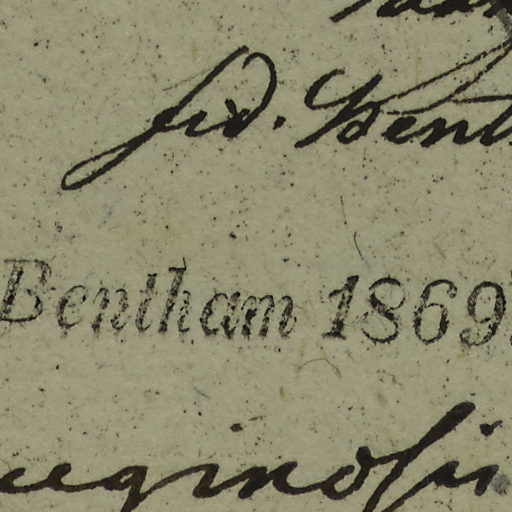 fid. Benth
Bentham 1869.
uginosi